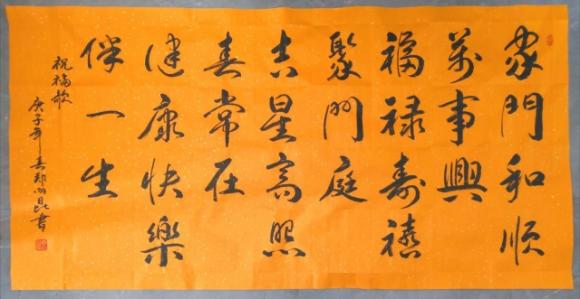 家門和順
萬事興
福禄壽禧
聚門庭
吉星高照
春常在
健康快樂
伴一生
祝福歌
庚子年春郑昆書